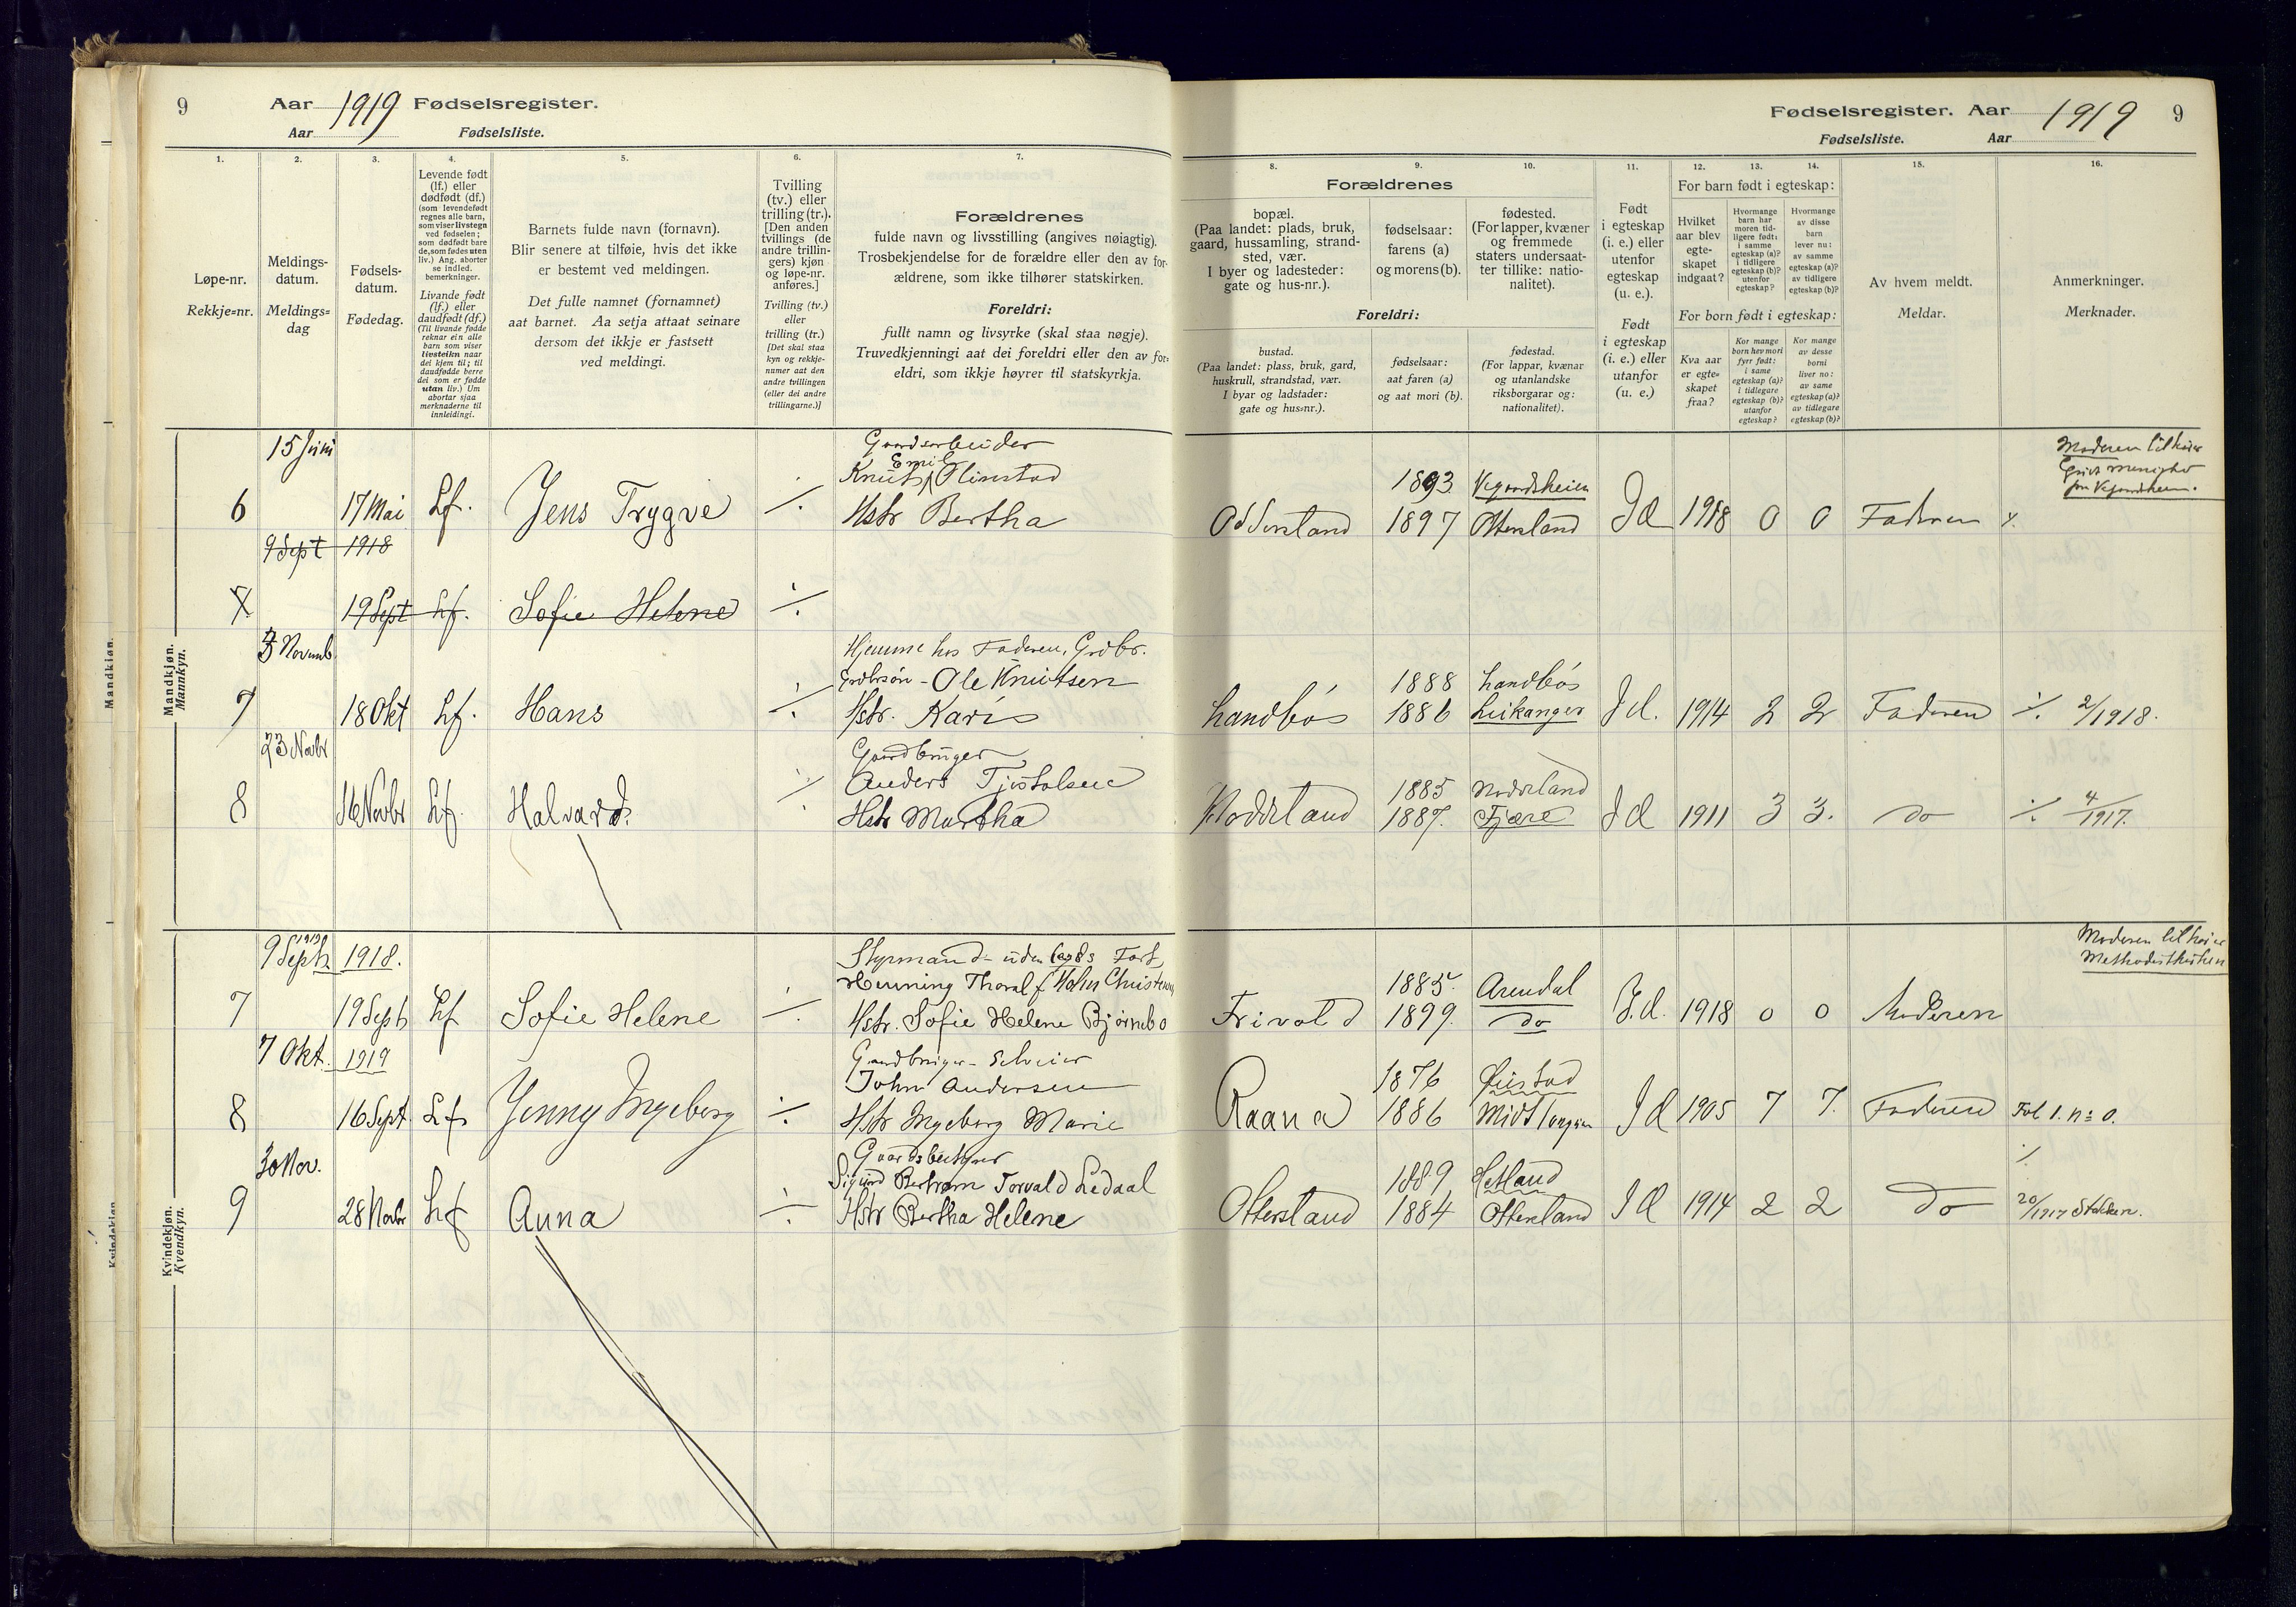 9
Aar 1919 Fødselsregister.
Aar Fødselsliste.
1.
2.
3.
4.
5.
6.
7.
Løpe-nr.
Rekkje=nr.
Meldings-
datum.
Meldings=
dag
Fødsels-
datum.
Fødedag.
Levende født
(lf.) eller
dødfødt (df.)
(som levendefødt
regnes alle barn,
som viser livstegn
ved fødselen;
som dødfødt bare
de, som fødes uten
liv.) Ang. aborter
se indled.
bemerkninger.
Livande født
(lf.) eller
daudfødt (df.)
(Til livande fødde
reknar ein alle
barn som viser
livsteikn naar
dei kjem til; til
daudfødde berre
dei som er fødde
utan liv.) Um
abortar sjaa
merknaderne til
innleidingi.
Barnets fulde navn (fornavn).
Blir senere at tilføie, hvis det ikke
er bestemt ved meldingen.
Det fulle namnet (fornamnet)
aat barnet. Aa setja attaat seinare
dersom det ikkje er fastsett
ved meldingi.
Tvilling
(tv.) eller
trilling (tr.).
[Den anden
tvillings (de
andre trillin-
gers) kjøn
og løpe-nr.
anføres.]
Tvilling (tv.)
eller
trilling (tr.)
[Det skal staa
kyn og rekkje-
numer aat den
andre tvillingen
(eller dei andre
trillingarne.)]
Forældrenes
fulde navn og livsstilling (angives nøiagtig).
Trosbekjendelse for de forældre eller den av for-
ældrene, som ikke tilhører statskirken.
Foreldri:
fullt namn og livsyrke (skal staa nøgje).
Truvedkjenningi aat dei foreldri eller den av for=
eldri, som ikkje høyrer til statskyrkja.
Mandkjøn.
Mandkjøn.
Mannkyn.
15 Juni
Gaardsarbeider
Emil
Knut Olimstad
6 17 Mai Lf. Jens Trygve ./. Hstr Bertha
9 Sept 1918
19 Sept Lf. Sofie Helene ./.
Novemb.
Hjemme hos Faderen, Grdbr.
Ole Knutsen
7 18 Okt Lf. Hans ./. Hstr. Karis
23 Novbr
Gaardbruger
Anders Tjostolsen
8 16 Novbr Lf. Halvard. ./. Hstr Martha
Kvindekjøn.
Kvindekjøn.
Kvendkyn.
1919
9 Septr 1918.
Styrmand uden Fart
Henning Thoralf Holm Christensen
7 19 Sept Lf Sofie Helene ./. Hstr. Sofie Helene Bjørnebo
7 Okt. 1919
Gaardbruger - Selveier
John Andersen
8 16 Sept. Lf. Jenny Ingeborg ./. Hstr Ingeborg Marie
30 Nov.
Gaardsbestyrer
Torvald Ledaal
9 28 Novbr Lf Anna ./. Hstr Bertha Helene
Fødselsregister. Aar 1919 9
Fødselsliste. Aar
8.
9.
10.
11.
12.
13.
14.
15.
16.
Forældrenes
bopæl.
(Paa landet: plads, bruk,
gaard, hussamling, strand-
sted, vær.
I byer og ladesteder:
gate og hus-nr.).
fødselsaar:
farens (a)
og morens (b).
fødested.
(For lapper, kvæner
og fremmede
staters undersaat-
ter tillike: natio-
nalitet).
Foreldri:
bustad.
(Paa landet: plass, bruk, gard,
huskrull, strandstad, vær.
I byar og ladstader:
gate og hus=nr.).
fødselsaar:
aat faren (a)
og aat mori (b).
fødestad.
(For lappar, kvænar
og utanlandske
riksborgarar og:
nationalitet).
Født
i egteskap
(i. e.) eller
utenfor
egteskap
(u. e.).
Født
i egteskap
(i. e.) eller
utanfor
(u. e.)
For barn født i egteskap:
Hvilket
aar blev
egte-
skapet
indgaat?
Hvormange
barn har
moren tid-
ligere født:
i samme
egteskap (a)?
i tidligere
egteskap (b)?
utenfor
egteskap?
Hvormange
av disse
barn
lever nu:
av samme
egteskap (a)?
av tidligere
egteskap (b)?
For born født i egteskap:
Kva aar
er egte=
skapet
fraa?
Kor mange
born hev mori
fyrr født:
i same
egteskap (a)?
i tidlegare
egteskap (b)?
utanfor
egteskap?
Kor mange
av desse
borni
liver no:
av same
egteskap (a)?
av tidlegare
egteskap (b)?
Av hvem meldt.
Meldar.
Anmerkninger.
Merknader.
Moderen tilhører
1893 Vegaardsheien
Odderstand 1897 Otterstand I E 1918 0 0 Faderen
1888 Landbös
Landbös 1886 Leikanger I E. 1914 2 2 Faderen ./. 2/1918.
1885
1887. Fjære I E 1911 3 3. do ./. 4/1917.
Moderen tilhører
Methodistkirken
1885. Arendal
Frivold 1899. do I.E. 1918 0 0 Moderen
1876 Øiestad
Raana 1886 I E 1905 7 7. Faderen Fol 1. n: 0.
1889 Hetland
Otterstand 1884 Otterstand I E 1914 2 2 do 20/1917 Stokken.